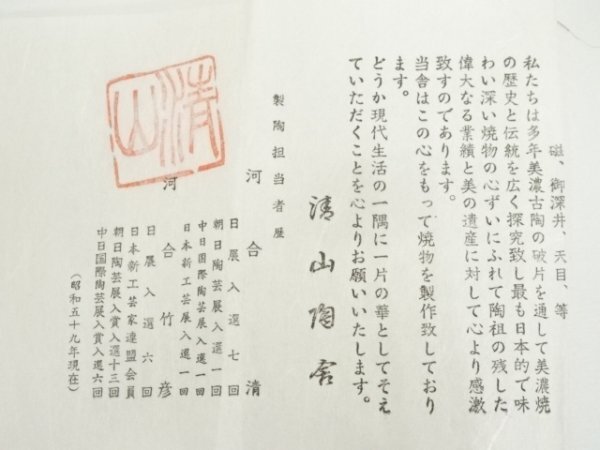 磁、御深井、天目、等
私たちは多年美濃古陶の破片を通して美濃焼
の歴史と伝統を広く探究致し最も日本的で味
わい深い焼物の心ずいにふれて陶祖の残した
偉大なる業績と美の遺産に対して心より感激
致すのであります。
当舎はこの心をもって焼物を製作致しており
ます。
どうか現代生活の一隅に一片の華としてそえ
ていただくことを心よりお願いいたします。
清山陶舎
製陶担当者歴
河合清
日展入選七回
朝日陶芸展入選一回
中日国際陶芸展入選一回
日本新工芸展入選一回
河合竹彦
日展入選六回
日本新工芸家連盟会員
朝日陶芸展入賞入選十三回
中日国際陶芸展入賞入選六回
(昭和五十九年現在)
清山